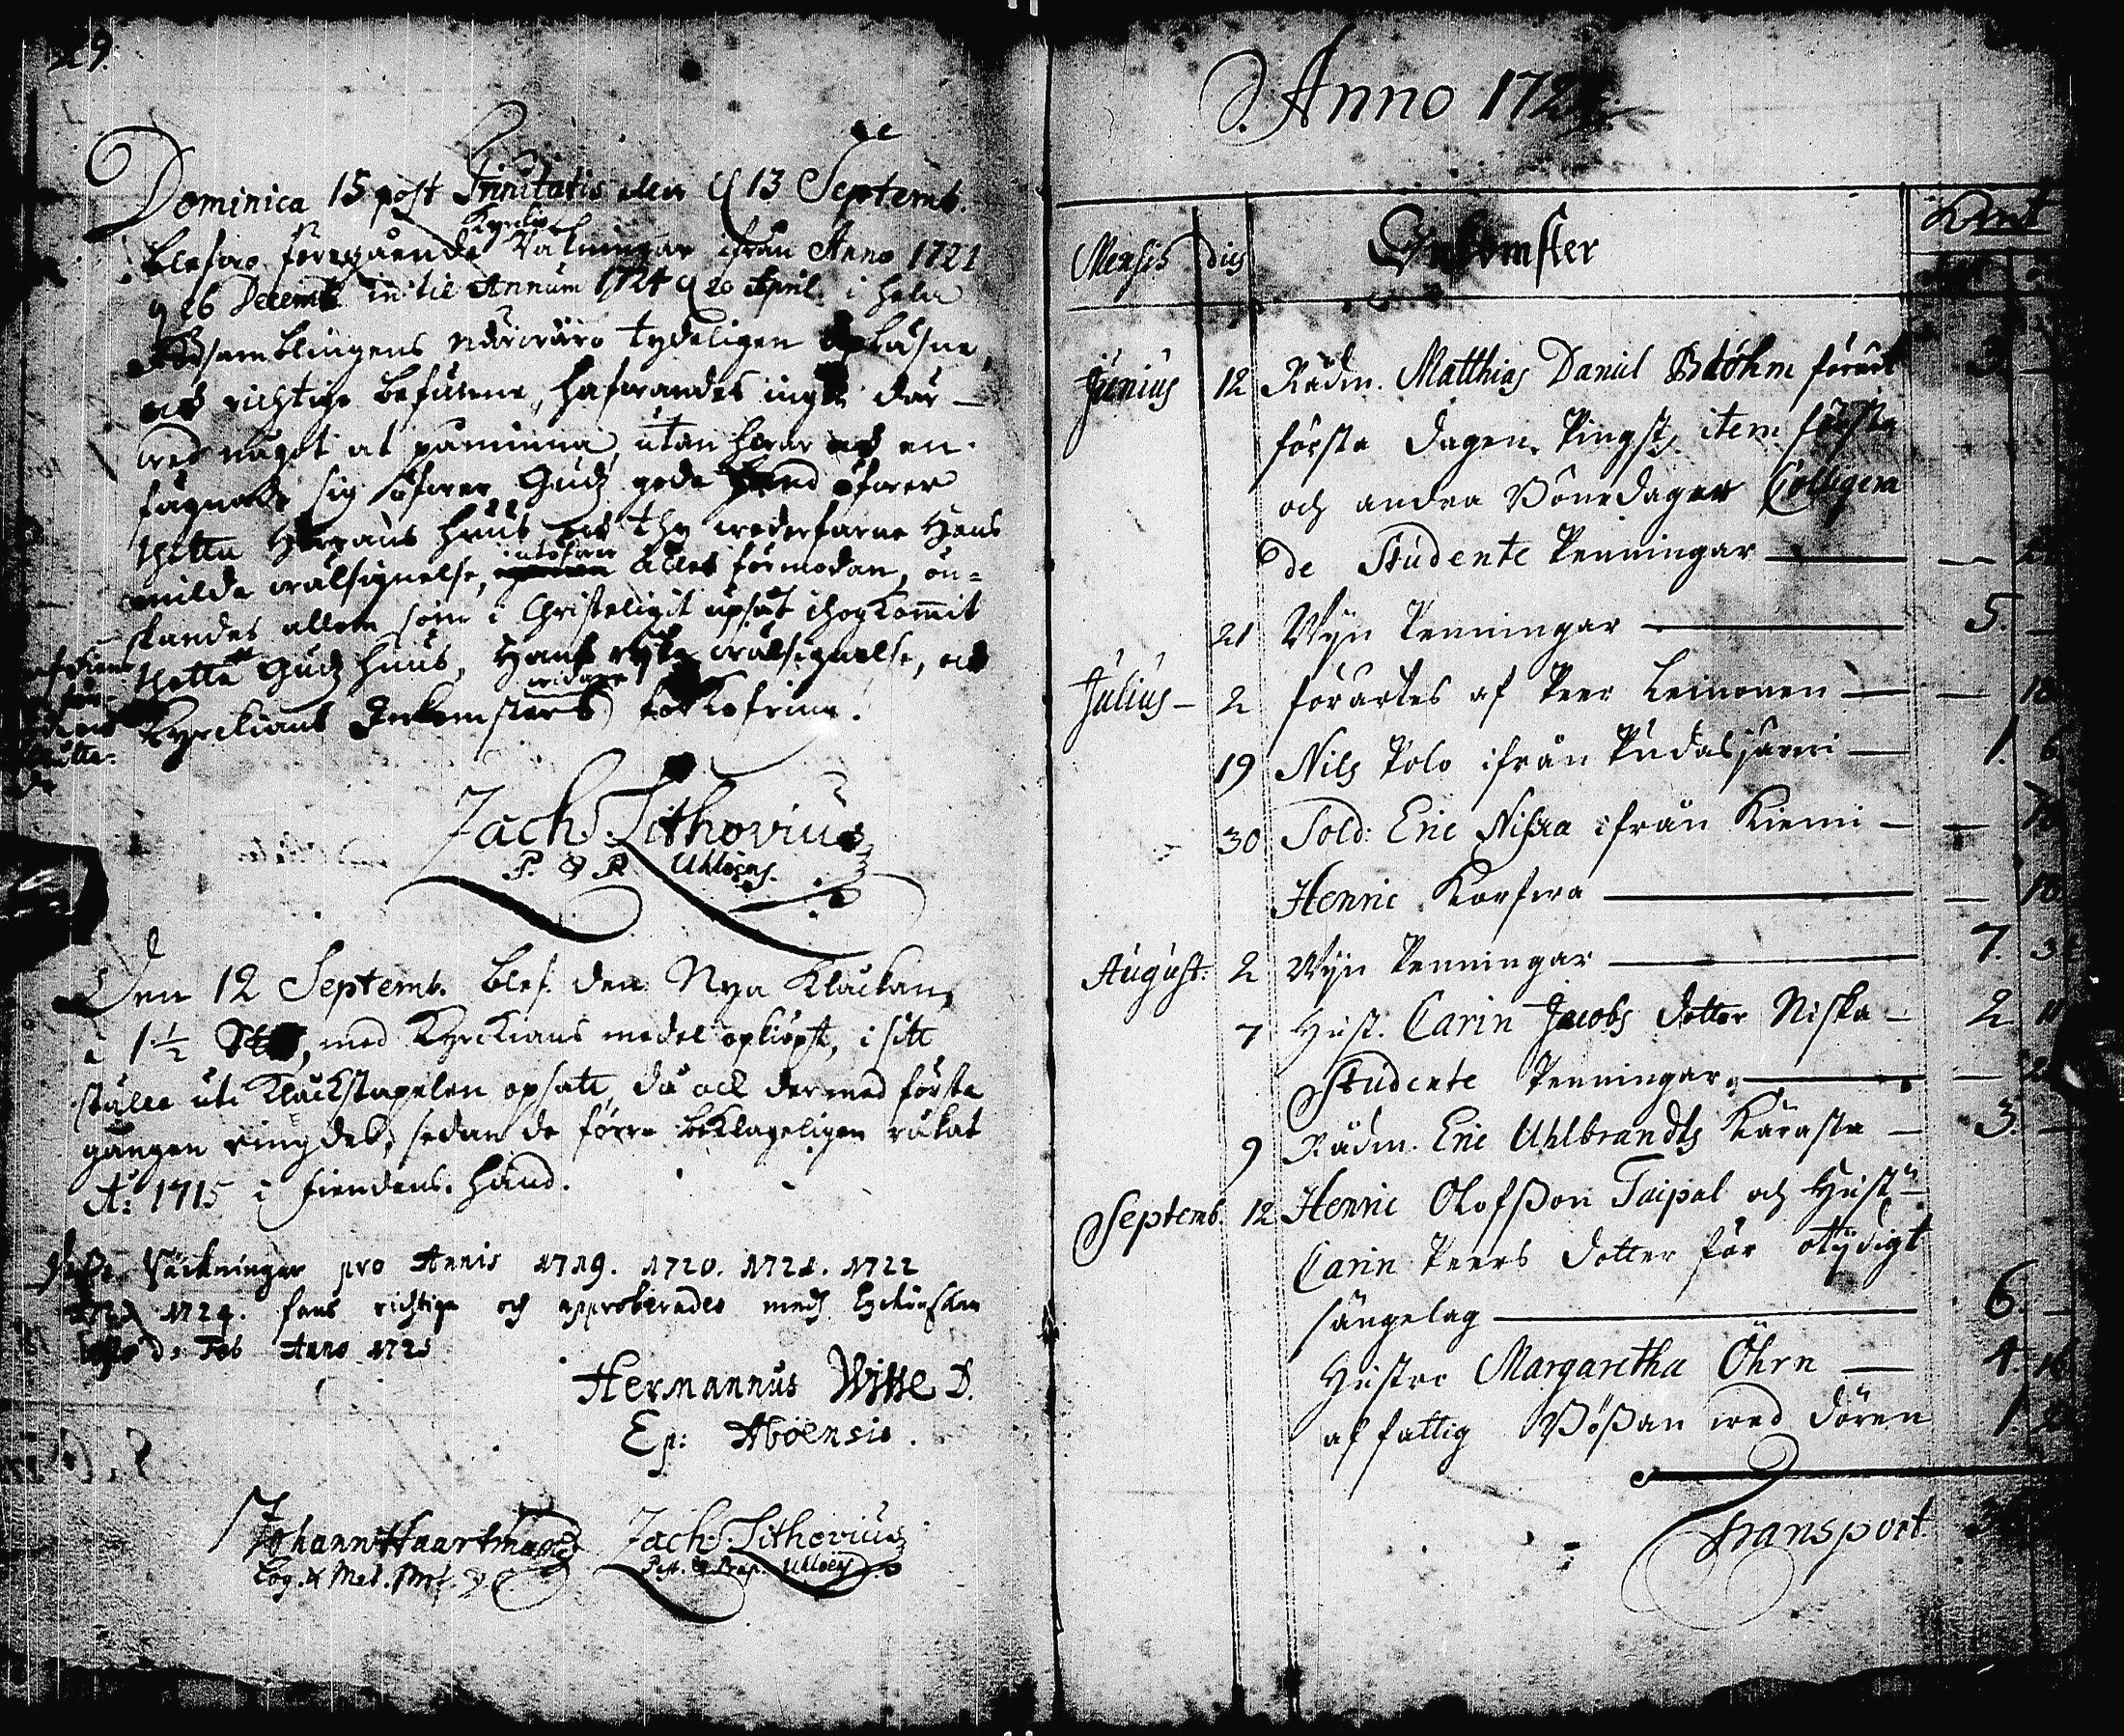 29.
Dominica 15 post Trinitatis den 13 Septemb.
Kyrkio
blefwo föregående Räkningar ifrån Anno 1721
d 26 Decemb. in til Annum 1724 d 20 April. i hela
Församblingens närwaro tydeligen opläsne,
och richtige befunne, hafwandes ingen där
wed något at påminna, utan hwar och en
fägnade sig öfwer Gudz goda hand öfwer
thetta Herrans huus och thy wederfarne Hans
intöfwer
milde wälsignelse, alles förmodan, ön=
skandes allom som i Christeligit upsåt ihogkommit
thetta Gudz huus, Hans rika wälsignelse, och
widare
Kyrckians Inkomsters förkofring.
Zach. Lithovius
P. & P. Uhloens.
Den 12 Septemb. blef den Nya Klackan,
à 1½ med Kyrckians medel opköpt, i sitt
ställe uti Klackstapelen opsatt, då ock dermed första
gången ringdes, sedan de förre beklageligen råkat
A: 1715 i fiendens hand.
Räckningar pro Annis 1719. 1720. 1721. 1722
1724. fans richtiga och approberades
d. Feb Anno 1725
Hermannus Witte D.
Ep: Aboensis.
Johann Haartman
Log. & Met. Prof.
Zach. Lithovius
Past. & Præp. Uhloens
Anno 172
Mensis dies Inkomster Kmt
Junius 12 Rådm. Matthias Daniel Bööhm förärt 3. —
första dagen Pingst, item första
och andra Bönedagen Colligera
de Studente Penningar —
21 Wijn Penningar — 5. —
Julius — 2 förärtes af Peer Leinonen — — 10
19 Nils Polo ifrån Pudasjärwi — 1. 6
30 Sold: Eric Niska ifrån Kiemi — —
Henric Korfwa — — 10
August: 2 Wijn Penningar — 7. 3
7 Hust. Carin Jacobs dotter Niska — 2 11
Studente Penningar —
9 Rådm. Eric Uhlbrandts Kärasta — 3. —
Septemb. 12 Henric Olofsson Taipal och Hust.
Carin Peers dotter för otijdigt
sängelag — 6. —
Hustro Margaretha Öhrn — 4. 16
af fattig Bössan wed dören 1.
Transport